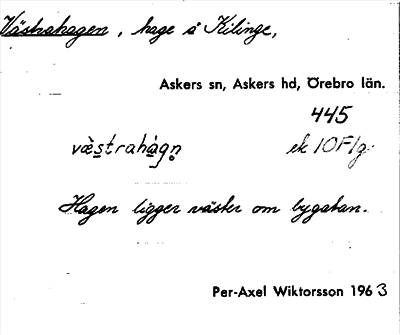 Västrahagen, hage å Kilinge,
Askers sn, Askers hd, Örebro län.
445
væ̀strahàgn̥ ek 10F1g.
Hagen ligger väster om bygatan.
Per-Axel Wiktorsson 1963